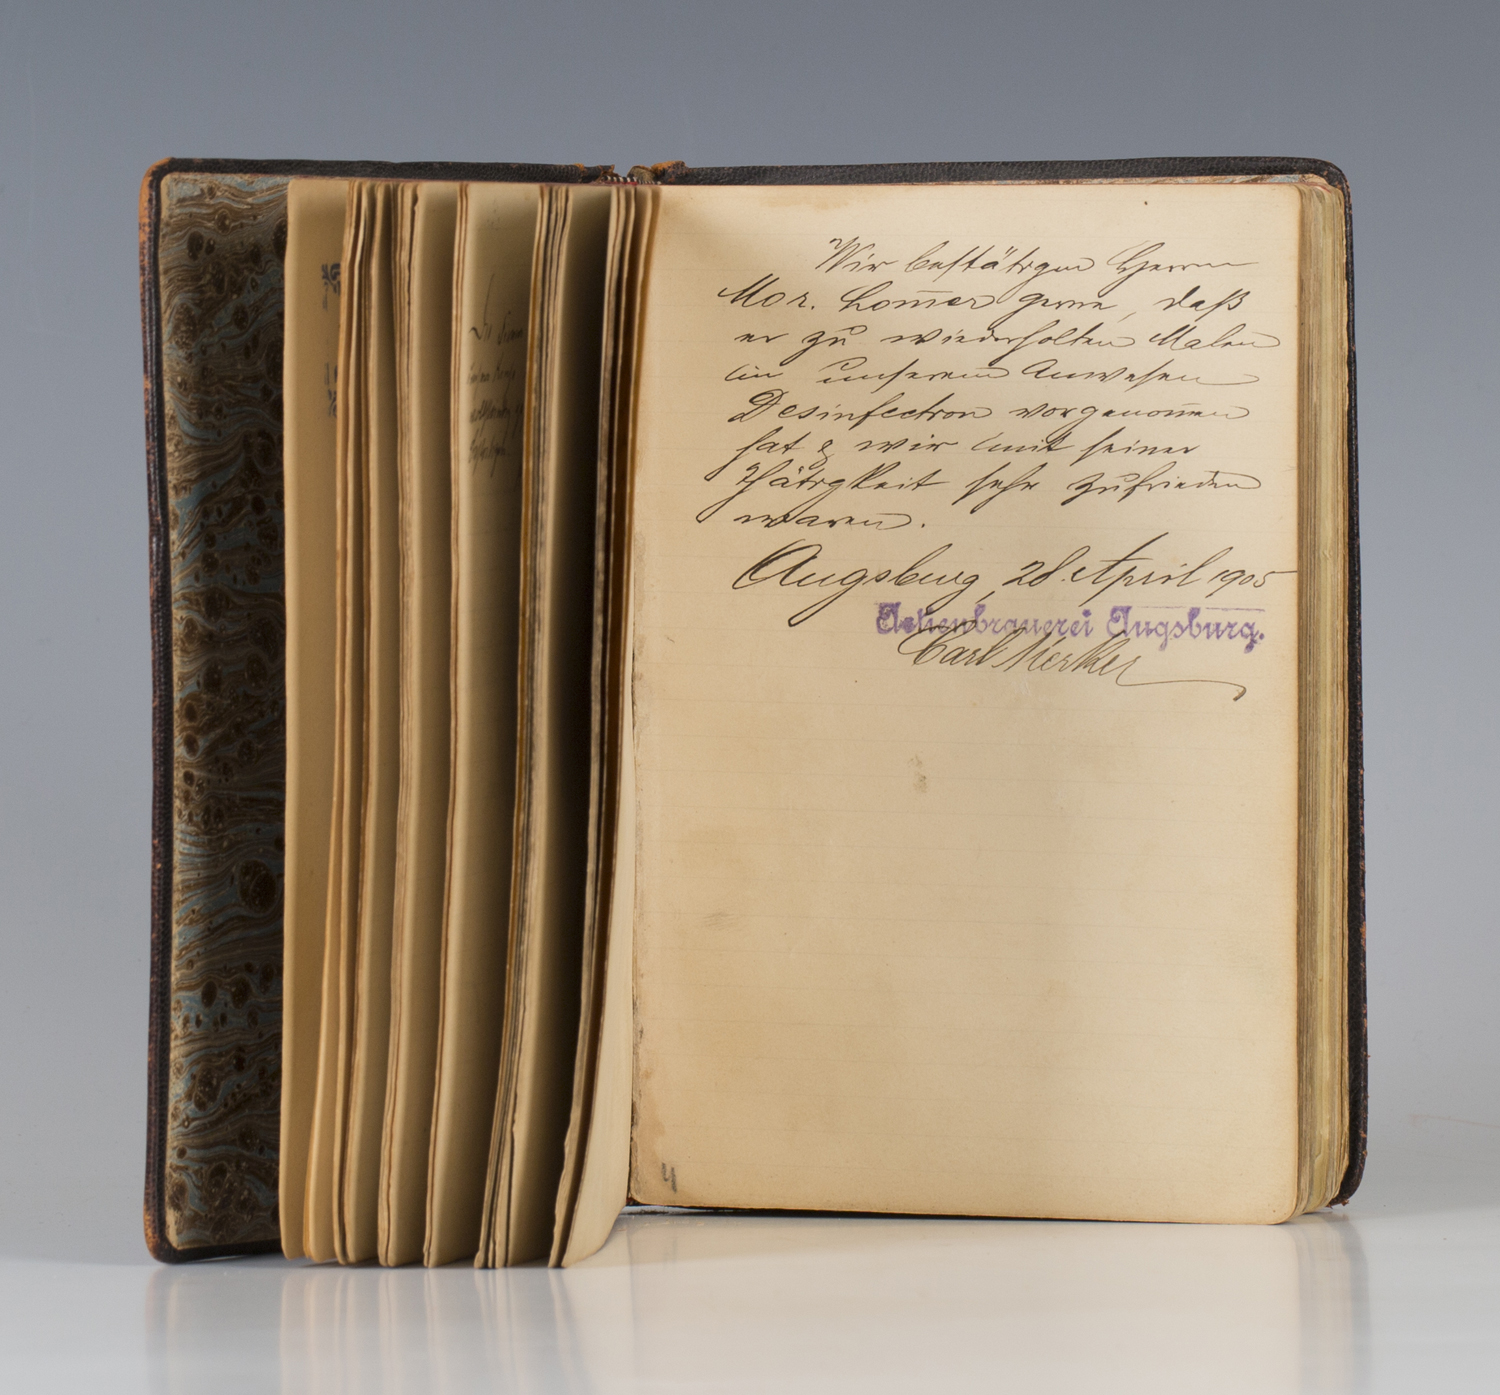 Wir bestätigen Herrn
Mor. Kom̅er gerne, daß
er zu wiederholten Malen
in unserem Anwesen
Desinfection vorgenom̅en
hat & wir mit seiner
Thätigkeit sehr zufrieden
waren.
Augsburg, 28. April 1905
Actienbrauerei Augsburg.
Carl Merkel
4